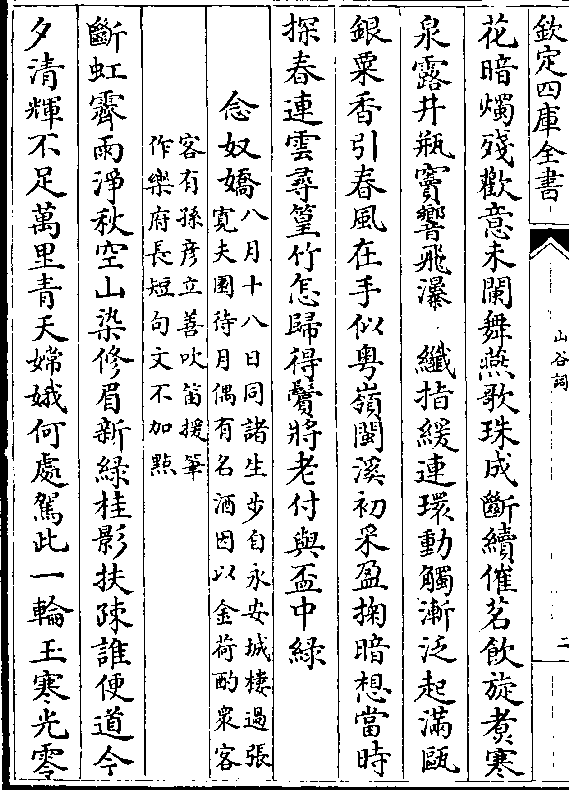 欽定四庫全書
山谷詞
二
花暗燭殘歡意未闌舞燕歌珠成斷續催茗飲旋煮寒
泉露井瓶竇響飛瀑 纖指緩連環動觸漸泛起滿甌
銀粟香引春風在手似粤嶺閩溪初采盈掬暗想當時
探春連雲尋篁竹怎歸得鬢將老付與盃中綠
念奴嬌
八月十八日同諸生步自永安城棲過張
寛夫園待月偶有名酒因以金荷酌衆客
客有孫彦立善吹笛援筆
作樂府長短句文不加㸃
斷虹霽雨淨秋空山染修眉新緑桂影扶疎誰便道今
夕清輝不足萬里青天嫦娥何處駕此一輪玉寒光零